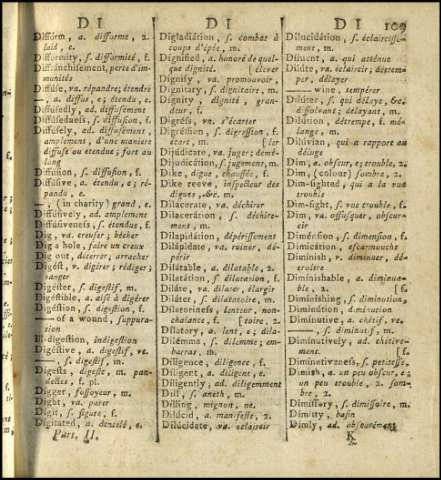 D I
Difform, a. difforme, 2.
laid, e.
Difformity, s. difformité, f.
Diffranchisement, perte d'im-
munités
Diffuse, va. répandre; étendre
—, a. diffus, e; étendu, e.
Diffusedly, ad. diffusément
Diffusedness, s. diffusion, f.
Diffusely, ad. diffusément,
amplement, d'une maniere
diffuse ou étendue; fort au
long
Diffusion, s. diffusion, f.
Diffusive, a. étendu, e; ré-
pandu, e.
—, (in charity) grand, e.
Diffusively, ad. amplement
Diffusiveness, s. étendue, f.
Dig, va. creuser; bêcher
Dig a hole, faire un creux
Dig out, déterrer, arracher
Digést, v. digérer; rédiger;
ranger
Digéster, s. digestif, m.
Digéstible, a. aisé à digérer
Digéstion, s. digestion, f.
— of a wound, suppura-
tion
Ill-digestion, indigestion
Digéstive, a. digestif, ve.
—, s. digestif, m.
Digests, digeste, m. pan-
dectes, f. pl.
Digger, fossoyeur, m.
Dight, va. parer
Digit, s. figure, f.
Digitated, a. dentelé, e.
Part. II.
D I
Digladiation, s. combat à
coups d'épée, m.
Dignified, a. honoré de quel-
que dignité. [élever
Dignify, va. promouvoir,
Dignitary, s. dignitaire, m.
Dignity, dignité, gran-
deur, f.
Digréss, vn. s'écarter
Digréssion, s. digression, f.
écart, m. [ler
Dijúdicate, va. juger; démê-
Dijudicátion, s. jugement, m.
Dike, digue, chaussée, f.
Dike reeve, inspecteur des
digues, &c. m.
Dilacerate, va. déchirer
Dilacerátion, s. déchire-
ment, m.
Dilapidátion, dépérissement
Diláp­idate, va. ruiner, dé-
périr
Dilátable, a. dilatable, 2.
Dilatátion, s. dilatation, f.
Diláte, va. dilater, élargir
Diláter, s. dilatatoire, m.
Dilatoriness, lenteur, non-
chalance, f. [toire, 2.
Dilatory, a. lent, e; dila-
Dilémma, s. dilemme; em-
barras, m.
Diligence, diligence, f.
Diligent, a. diligent, e.
Diligently, ad. diligemment
Dill, s. aneth, m.
Dilling, mignon, ne.
Dilúcid, a. manifeste, 2.
Dilúcidate, va. eclaircir
D I 109
Dilucidátion, s. éclaircisse-
ment, m.
Diluent, a. qui atténue
Dilúte, va. éclaircir; détrem-
per, délayer
— wine, tempérer
Dilúter, s. qui délaye, &c.
dissolvant; délayant, m.
Dilútion, détrempe, f. mé-
lange, m.
Dilúvian, qui a rapport au
déluge
Dim, a. obscur, e; trouble, 2.
Dim, (colour) sombre, 2.
Dim-sighted, qui a la vue
trouble
Dim-sight, s. vue trouble, f.
Dim, va. offusquer, obscur-
cir
Diménsion, s. dimension, f.
Dimicátion, escarmouche
Diminish, v. diminuer, dé-
croitre
Diminishable, a. diminua-
ble, 2. [f.
Diminishing, s. diminution,
Diminution, diminution
Diminutive, a. chétif, ve.
—, s. diminutif, m.
Diminutively, ad. chétive-
ment. [f.
Diminutiveness, s. petitesse,
Dimish, a. un peu obscur, e;
un peu trouble, 2. som-
bre, 2.
Dimissory, s. dimissoire, m.
Dimitty, basin
Dimly, ad. obscurément
K